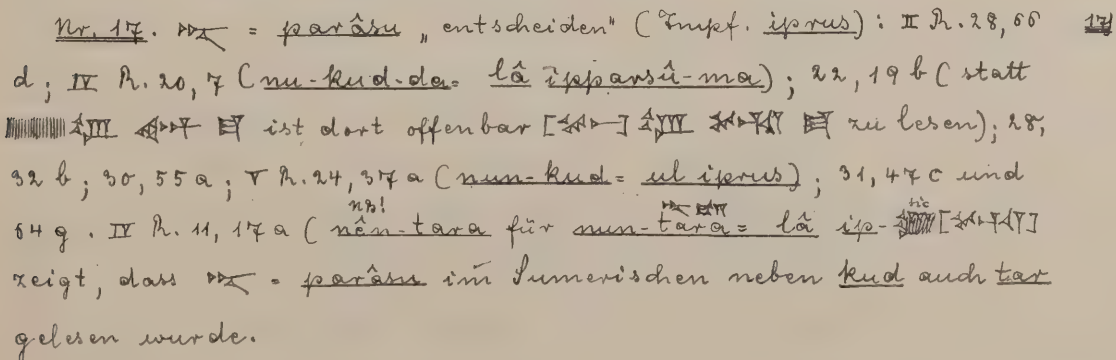 Nr. 17. 𒋻 = parâsu „entscheiden" (Impf. iprus): II R. 28, 66 17)
d; IV R. 20, 7 (nu-kud-da = lâ ipparsû-ma); 22, 19 b (statt
ist dort offenbar [ ] zu lesen); 28,
32 b; 30, 55 a; V R. 24, 37 a (nun-kud = ul iprus); 31, 47 c und
64 g. IV R. 11, 17 a (nên-tara für nun-tara = lâ ip-
zeigt, dass 𒋻 = parâsu im Sumerischen neben kud auch tar
gelesen wurde.